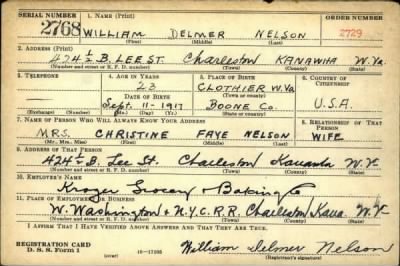 SERIAL NUMBER 1. NAME (Print) ORDER NUMBER
2768 WILLIAM DELMER NELSON 2729
(First) (Middle) (Last)
2. ADDRESS (Print)
424 1/2 B. LEE ST. Charleston KANAWHA W. Va.
(Number and street or R. F. D. number) (Town) (County) (State)
3. TELEPHONE 4. AGE IN YEARS 5. PLACE OF BIRTH 6. COUNTRY OF CITIZENSHIP
23 CLOTHIER W.Va
(Town or county)
DATE OF BIRTH
Sept. 11-1917 BOONE Co. U.S.A.
(Exchange) (Number) (Mo.) (Day) (Yr.) (State or country)
7. NAME OF PERSON WHO WILL ALWAYS KNOW YOUR ADDRESS 8. RELATIONSHIP OF THAT PERSON
MRS. CHRISTINE FAYE NELSON WIFE
(Mr., Mrs., Miss) (First) (Middle) (Last)
9. ADDRESS OF THAT PERSON
424 1/2 B. Lee St. Charleston Kanawha W. V.
(Number and street or R. F. D. number) (Town) (County) (State)
10. EMPLOYER'S NAME
Kroger Grocery & Baking Co
11. PLACE OF EMPLOYMENT OR BUSINESS
W. Washington & N.Y.C. R.R. Charleston Kana. W. V.
(Number and street or R. F. D. number) (Town) (County) (State)
I AFFIRM THAT I HAVE VERIFIED ABOVE ANSWERS AND THAT THEY ARE TRUE.
REGISTRATION CARD
D. S. S. Form 1 (over) William Delmer Nelson
(Registrant's signature)